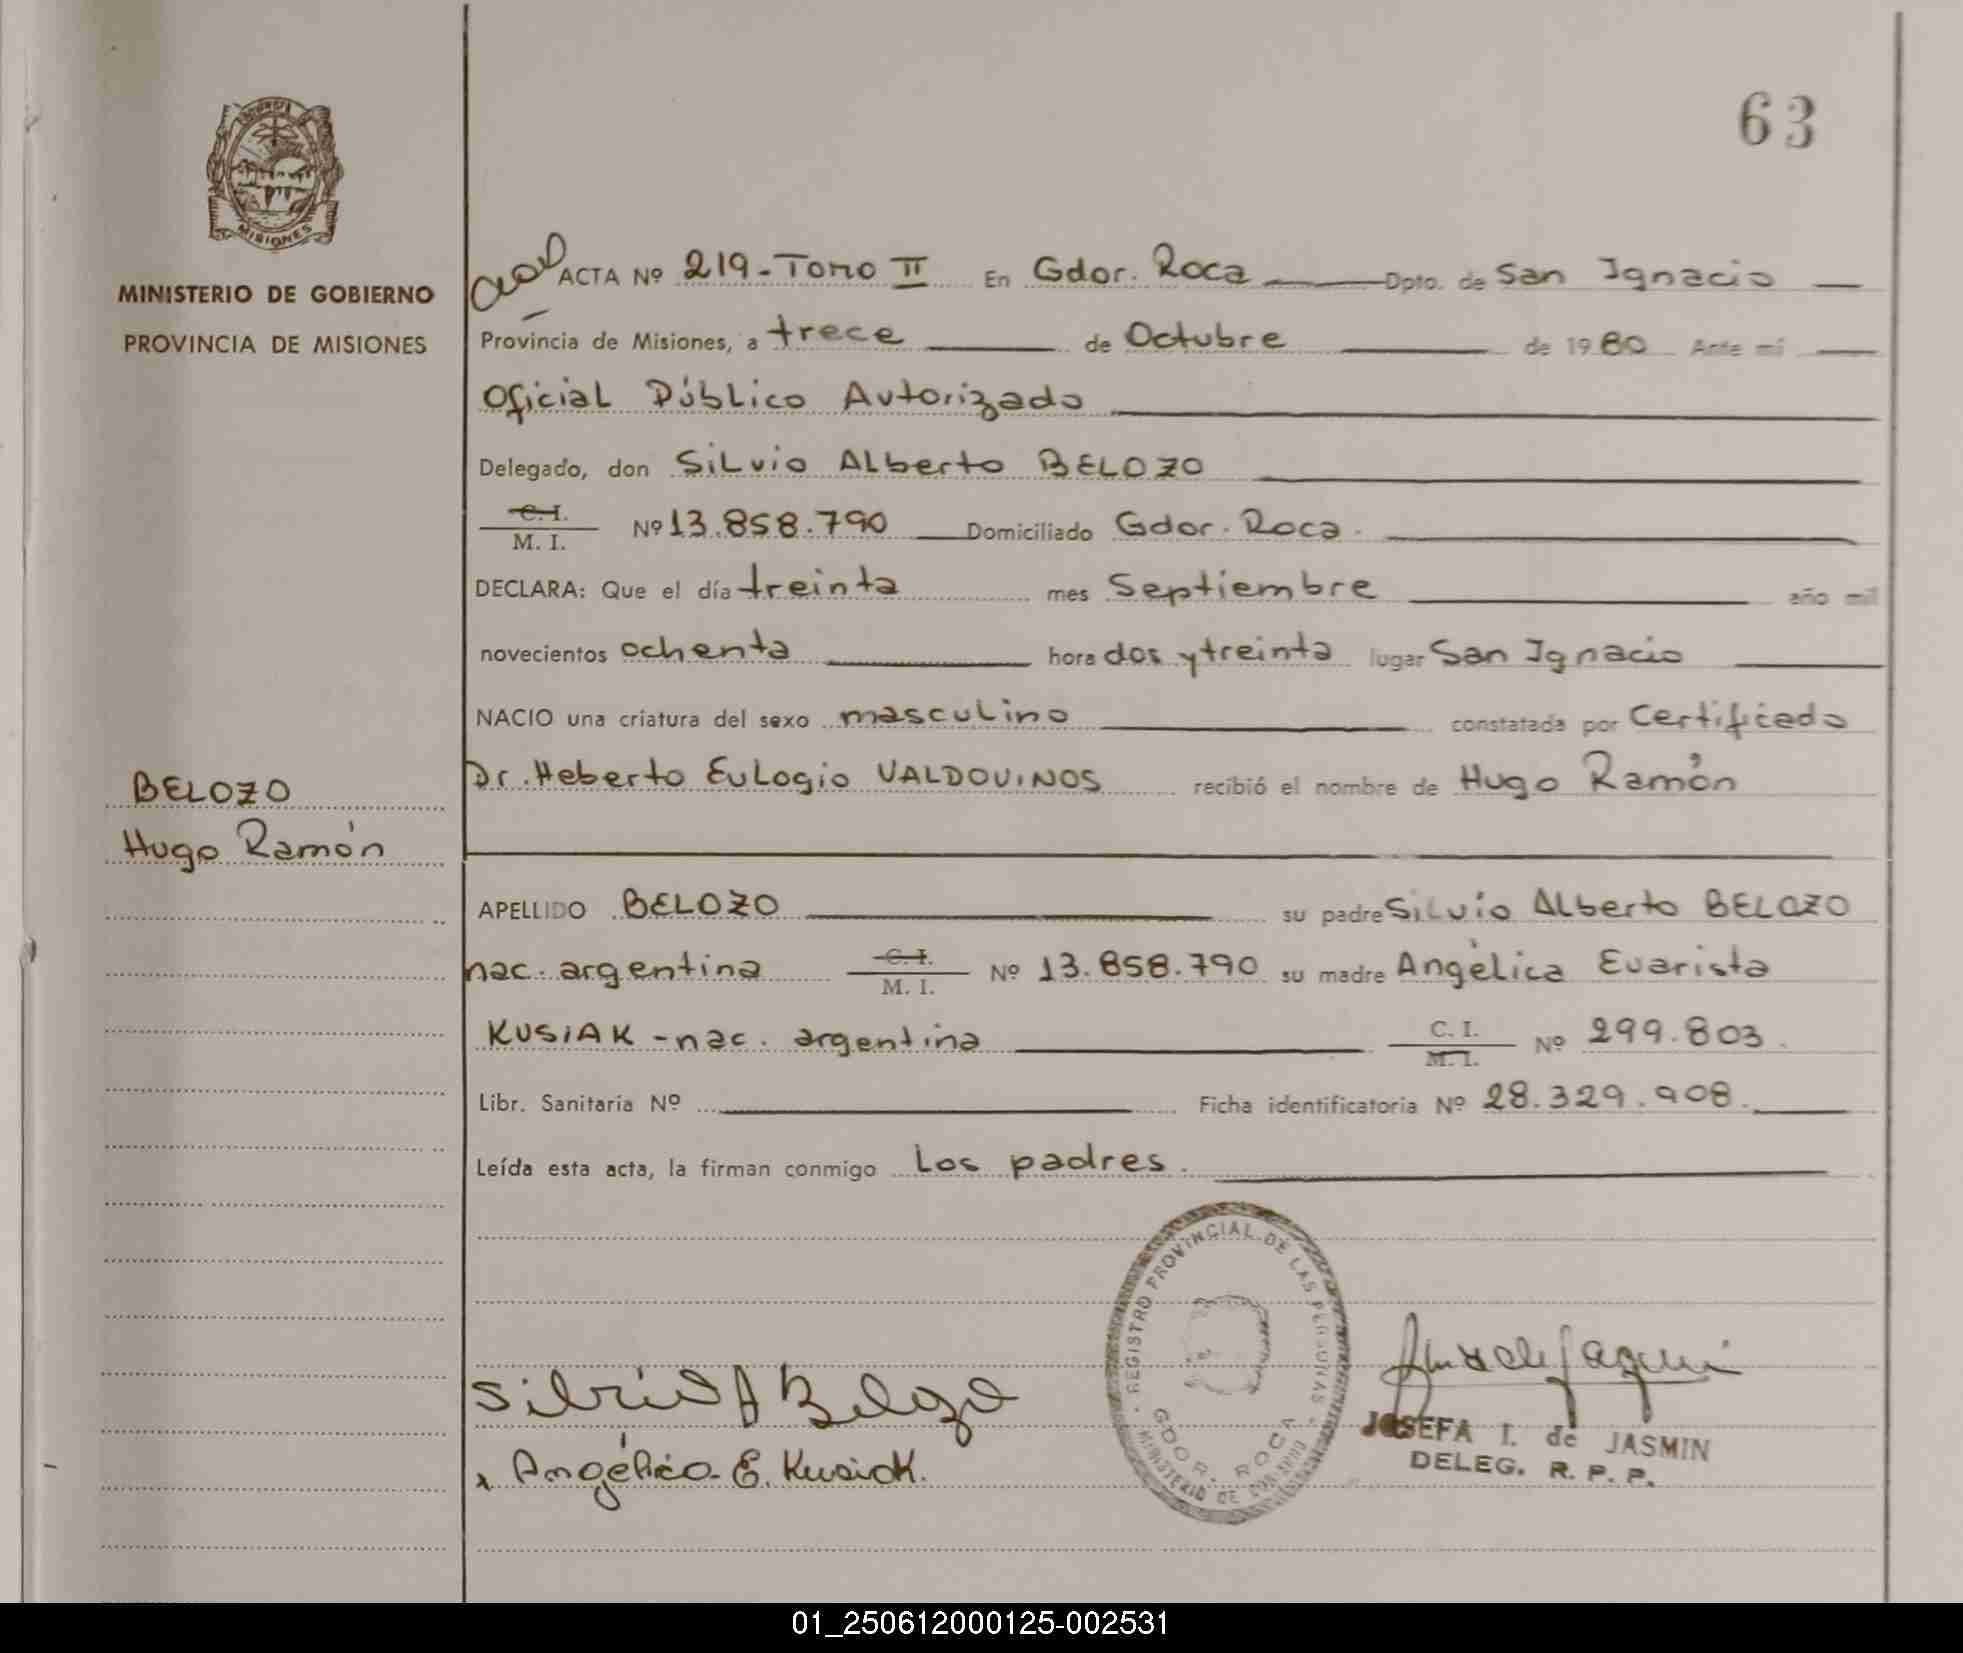 63
MISIONES
MINISTERIO DE GOBIERNO
PROVINCIA DE MISIONES
BELOZO
Hugo Ramón
ACTA Nº 219-Tomo II En Gdor. Roca Dpto. de San Ignacio
Provincia de Misiones, a trece de Octubre de 1980 Ante mí
Oficial Público Autorizado
Delegado, don Silvio Alberto BELOZO
C. I.
M. I. Nº 13.858.790 Domiciliado Gdor. Roca.
DECLARA: Que el día treinta mes Septiembre año mil
novecientos ochenta hora dos y treinta lugar San Ignacio
NACIO una criatura del sexo masculino constatada por Certificado
Dr. Heberto Eulogio VALDOVINOS recibió el nombre de Hugo Ramón
APELLIDO BELOZO su padre Silvio Alberto BELOZO
nac. argentina C. I. M. I. Nº 13.858.790 su madre Angélica Evarista
KUSIAK - nac. argentina C. I. M. I. Nº 299.803.
Libr. Sanitaria Nº Ficha identificatoria Nº 28.329.908.
Leída esta acta, la firman conmigo Los padres.
REGISTRO PROVINCIAL DE LAS PERSONAS
GDOR. ROCA
MINISTERIO DE GOBIERNO
Silvio A Belozo
Angélica E. Kusiak.
JOSEFA I. de JASMIN
DELEG. R. P. P.
01_250612000125-002531